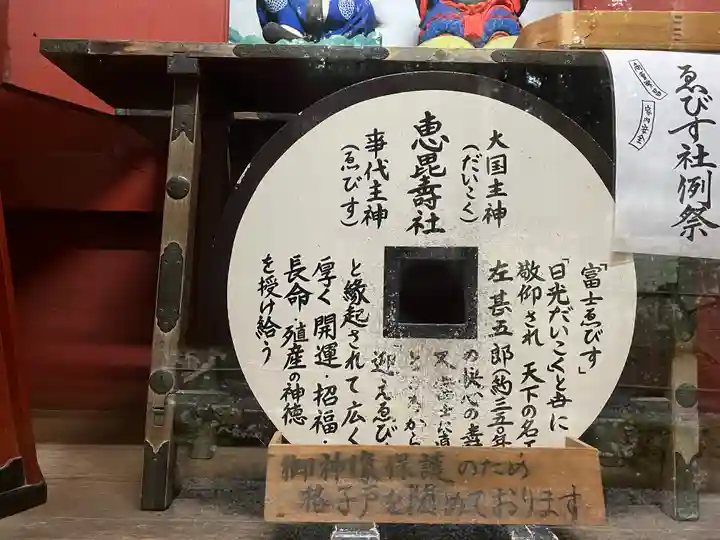 ゑびす社例祭
家内安全
恵毘壽社
大国主神
(だいこく)
事代主神
(ゑびす)
「富士ゑびす」
「日光だいこくと毋に
敬仰され 天下の名
左 甚五郎(約三五〇年
の決心の
から
迎えゑび
と縁起されて 広く
厚く 開運・招福・
長命・殖産の神徳
を授け給う
御神像保護のため
格子戸を閉めております